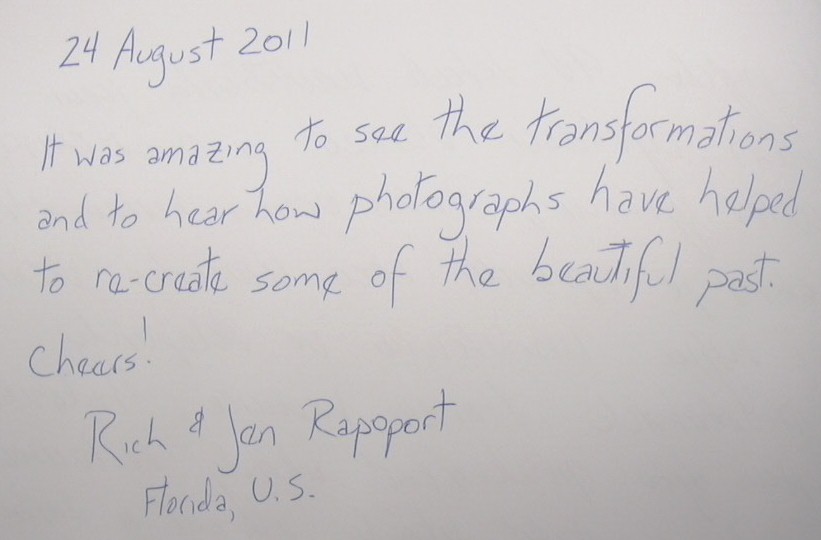 24 August 2011
It was amazing to see the transformations
and to hear how photographs have helped
to re-create some of the beautiful past.
Cheers!
Rich & Jan Rapoport
Florida, U.S.